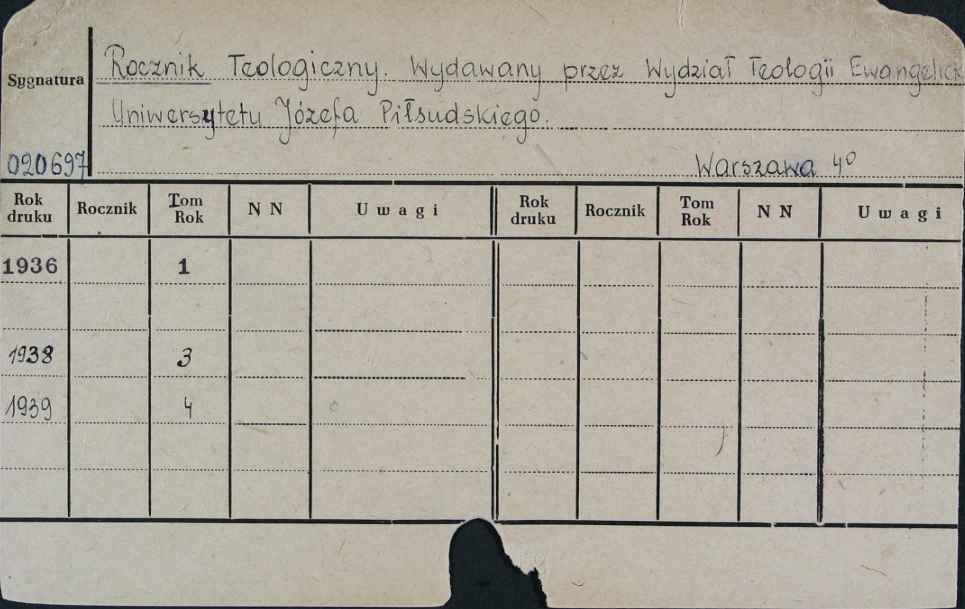 Rocznik Teologiczny. Wydawany przez Wydział Teologii Ewangelick
Sygnatura
Uniwersytetu Józefa Piłsudskiego.
020697
Warszawa 4º
Rok druku Rocznik Tom Rok N N Uwagi Rok druku Rocznik Tom Rok N N Uwagi
1936 1
1938 3
1939 4